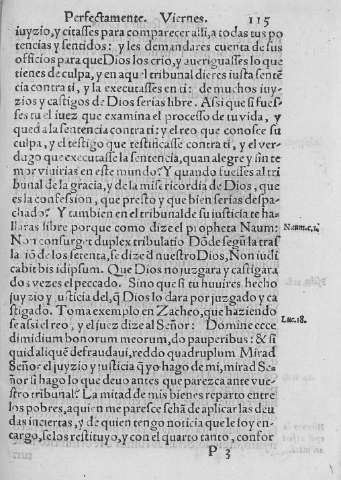 Perfectamente. Viernes. 115
iuyzio, y citasses para comparecer alli, a todas tus po
tencias y sentidos: y les demandares cuenta de sus
officios para que Dios los crio, y aueriguasses lo que
tienes de culpa, y en aquel tribunal dieres iusta sentē
cia contra ti, y la executasses en ti: de muchos iuy-
zios y castigos de Dios serias libre. Assi que si fues-
ses tu el iuez que examina el processo de tu vida, y
queda la sentencia contra ti: y el reo que conosce su
culpa, y el testigo que testificasse contra ti, y el ver-
dugo que executasse la sentencia, quan alegre y sin te
mor viuirias en este mundo? Y quando fuesses al tri
bunal de la gracia, y de la misericordia de Dios, que
es la confession, que presto y que bien serias despa-
chado? Y tambien en el tribunal de su iusticia te ha-
llaras libre porque como dize el propheta Naum: Naum.c.1.
Non consurget duplex tribulatio Dōde segun la tras
lació de los setenta, se dize d̄ nuestro Dios, Ñon iudi
cabit bis idipsum. Que Dios no juzgara y castigara
dos vezes el peccado. Sino que si tu huuires hecho
juyzio y iusticia del, q̄ Dios lo dara por juzgado y ca
stigado. Toma exemplo en Zacheo, que haziendo
se assi el reo, y el juez dize al Señor: Domine ecce Luc.18.
dimidium bonorum meorum, do pauperibus: & si
quid aliquē defraudaui, reddo quadruplum Mirad
Señor el juyzio y justicia q̄ yo hago de mi, mirad Se-
ñor si hago lo que deuo antes que parezca ante vue-
stro tribunal. La mitad de mis bienes reparto entre
los pobres, a quien me paresce sehā de aplicar las deu
das inciertas, y de quien tengo noticia que le soy en-
cargo, se los restituyo, y con el quarto tanto, confor
P 3